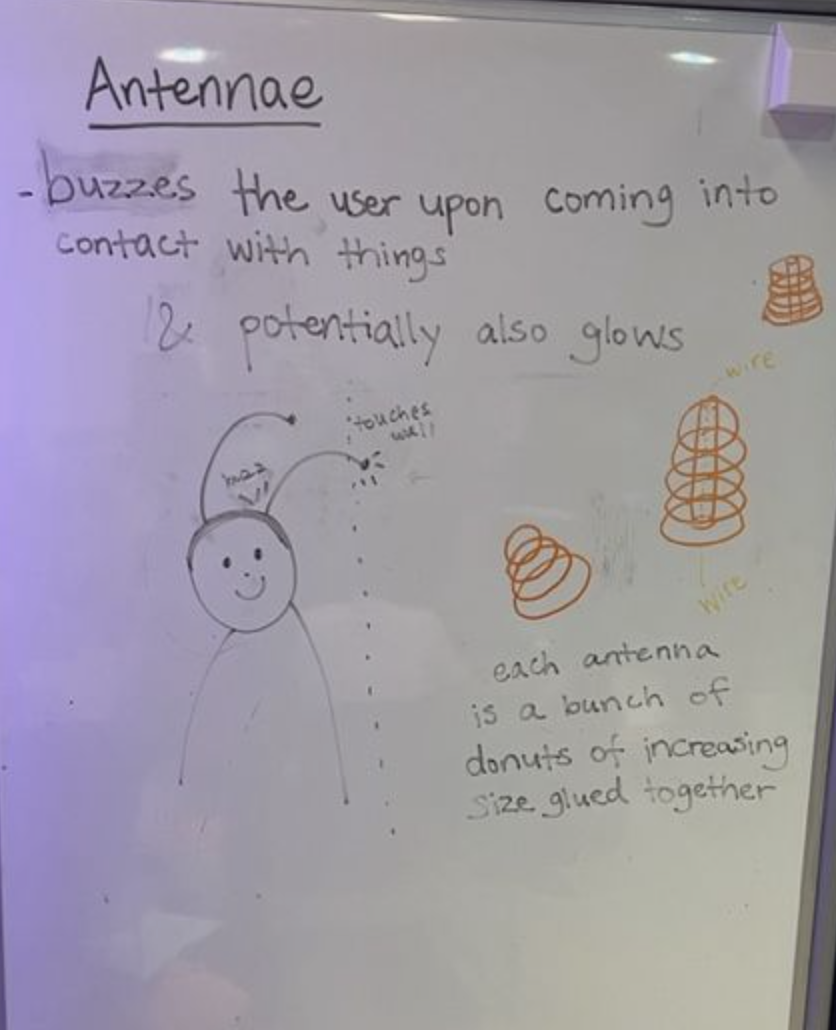 Antennae
- buzzes the user upon coming into
contact with things
& potentially also glows
touches
wall
wire
wire
each antenna
is a bunch of
donuts of increasing
size glued together